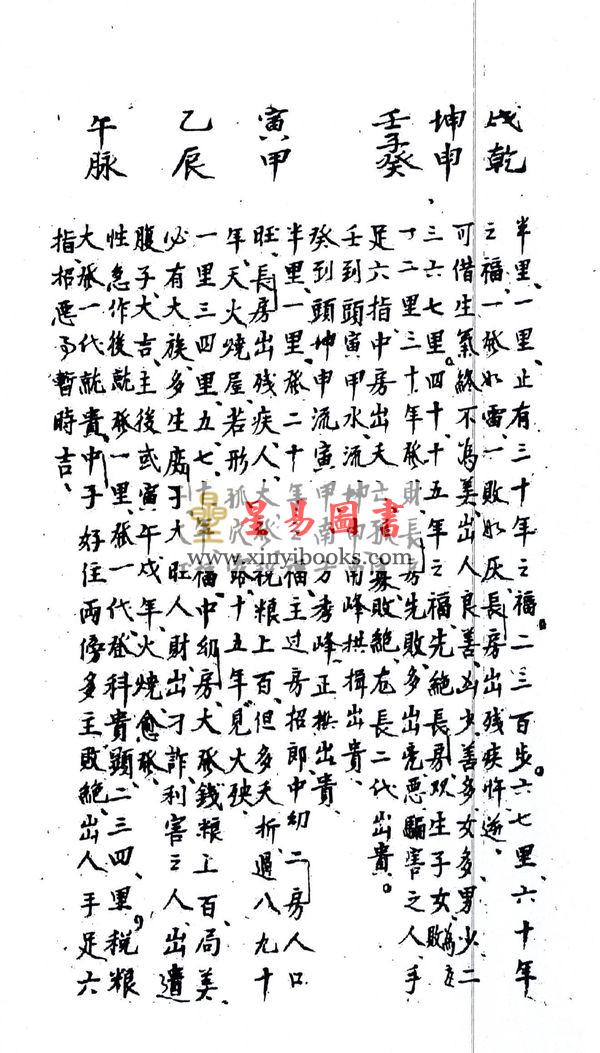 戌乾
半里、一里、止有三十年之福。二三百步。六七里、六十年
之福、一發如雷、一敗如灰、長房出残疾忤逆、
坤申
可借生氣、終不為美、出人良善、凶少善多、女多男少、二
三六七里。四十十五年之福、先絶長房、双生子女、敗
壬子癸
一二里三十年發、財長房先敗、多出兇惡騙害之人、手
足六指、中房出天 寡敗絶、左長二代出貴。
壬到頭寅甲水流、坤 南峰拱揖出貴、
癸到頭坤申流寅甲 南方秀峰正拱出貴、
寅甲
半里一里、發二十年之福、主过房招郎、中幼二房人口
旺、長房出残疾人、大發税粮上百、但多夭折、過八九十
年、天火燒屋、若形孤 十五年見大殃、
乙辰
一里三四里五七 年福、中幼房大發、錢粮上百、局美、
必有大族、多生廣子、大旺人財、出刁詐利害之人、出遺
腹子、大吉、主後或寅午戌年、火燒愈發、
午脉
性急作後就發、一里發一代、登科貴顯、二三四里、税粮
大發、一代就貴、中子好住、兩傍多主敗絶、出人手足六
指、招惡子、暫時吉、
星易圖書
www.xinyibooks.com